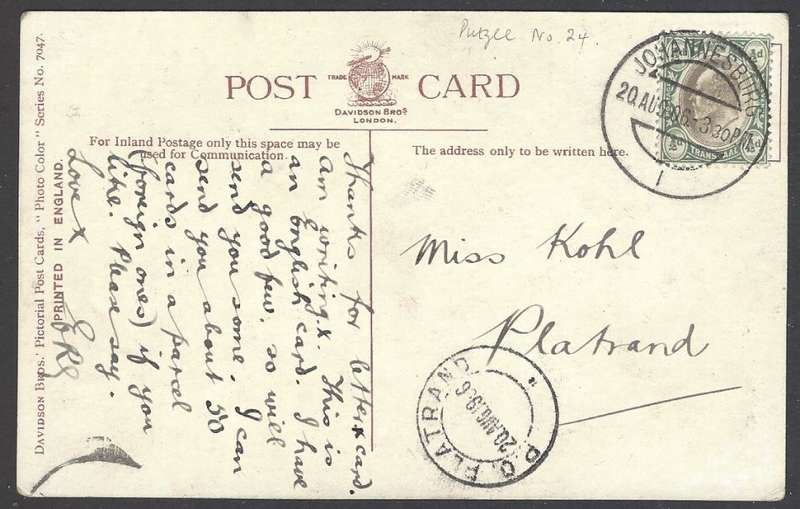 Putzel No. 24.
POST CARD
TRADE MARK
DAVIDSON BROS
LONDON.
For Inland Postage only this space may be
used for Communication.
The address only to be written here.
JOHANNESBURG
20 AUG 06 · 3.30 PM
1
½d
½d
TRANSVAAL
Thanks for letter & card.
Am writing x. This is
an English card. I have
a good few, so will
send you some. I can
send you about 50
cards in a parcel
(foreign ones) if you
like. Please say.
Love x
Miss Kohl
Platrand
P.O. PLATRAND
20 AUG 906
DAVIDSON BROS.' Pictorial Post Cards, "Photo Color" Series No. 7047.
PRINTED IN ENGLAND.